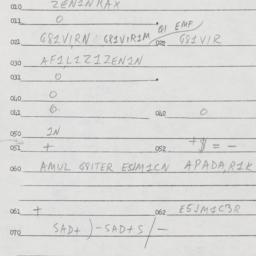 010 ZEN1NKAX
011 0
021 G81V1RN G81V1R1M 01 EMF 020 G81V1R
030 AF1L1Z1ZEN1N
033 0
040 0
041 0 042 0
050 1N
051 + 052 +$ = -
060 AMUL G81TER E5JM1CN APADA,R1K
061 + 062 E5JM1C3R
070 SAD+ ) -SAD+S / -